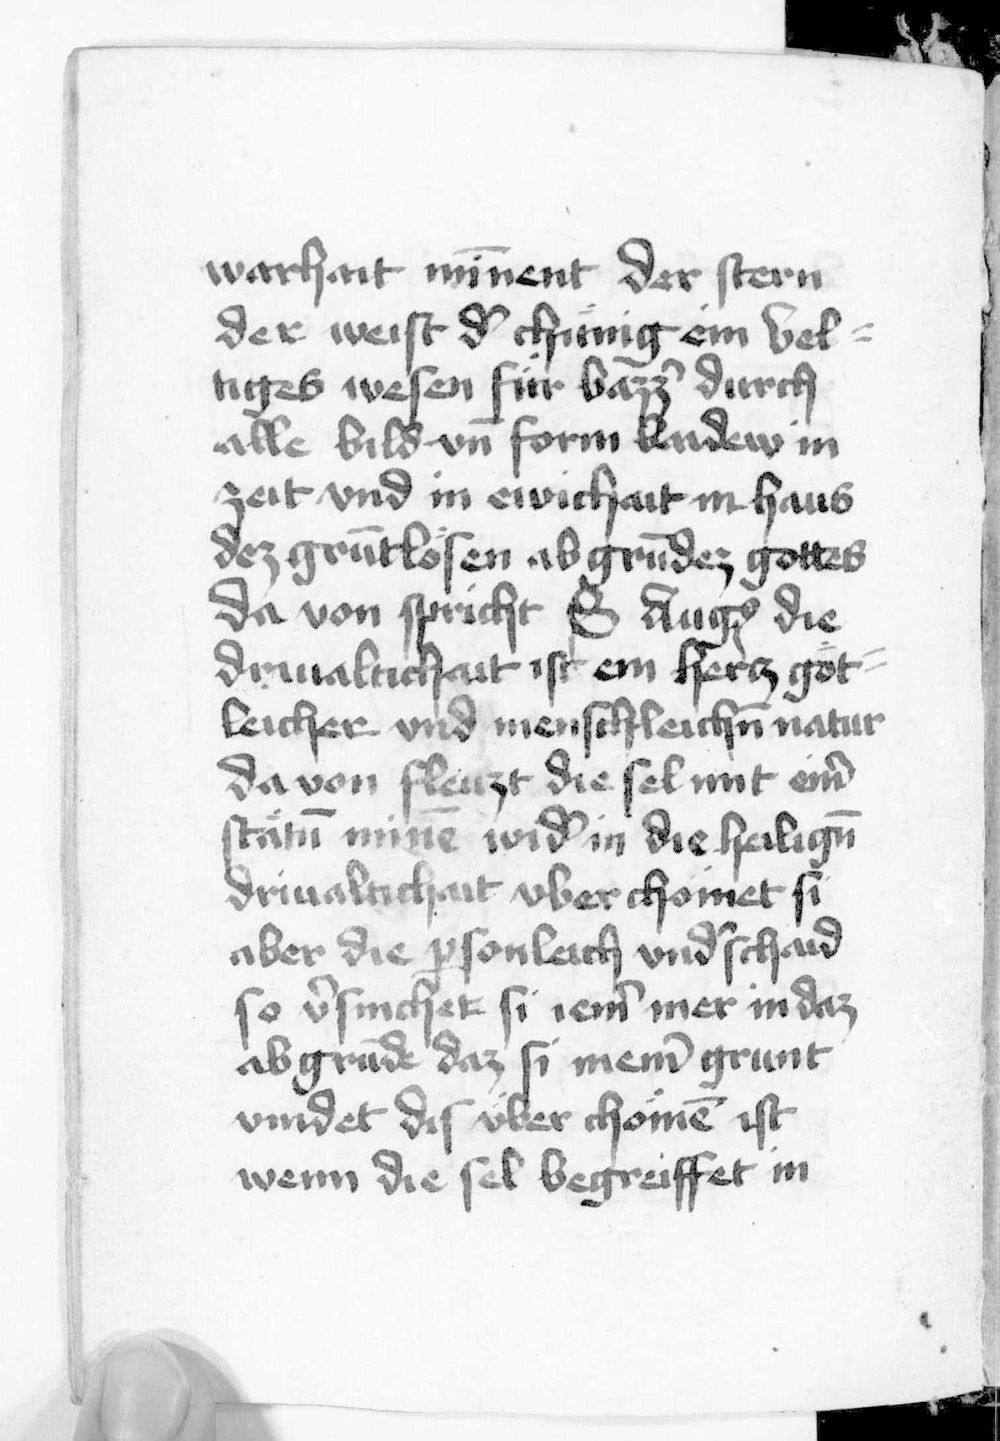 warhait mīnent der stern
der weist d͛ chünig ein vel=
tiges wesen für bazz͛ durch
alle bild vn̄ form in
zeit vnd in ewichait in haus
dez grūtlösen ab grūdez gottes
da von spricht S Aug⁹ die
driualtichait ist ein hercz göt=
leicher vnd menschleichn̄ natur
da von fleuzt die sel mit eim͛
stätn̄ minē wid͛ in die heilign̄
driualtichait vber chömet si
aber die ꝑsonleich vnd͛schaid
so v͛sinchet si iem͛ mer in daz
ab grūde daz si niem͛ grunt
vindet dis vber chömē ist
wenn die sel begreiffet in